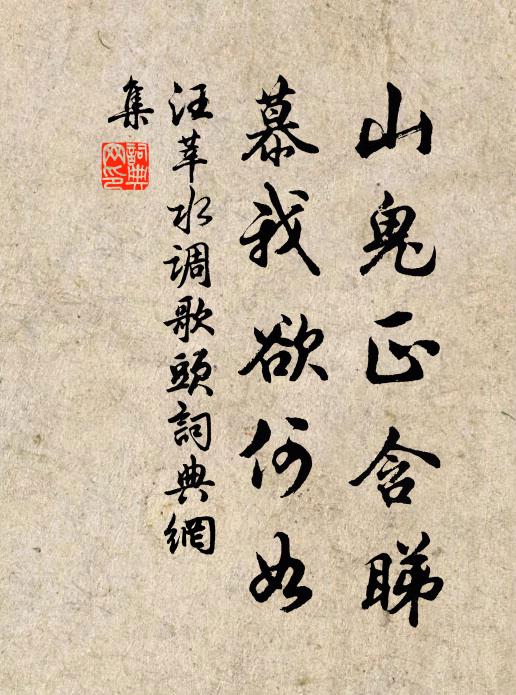 山鬼正含睇
慕我欲何如
汪莘水调歌頭詞典網
集
詞典网印